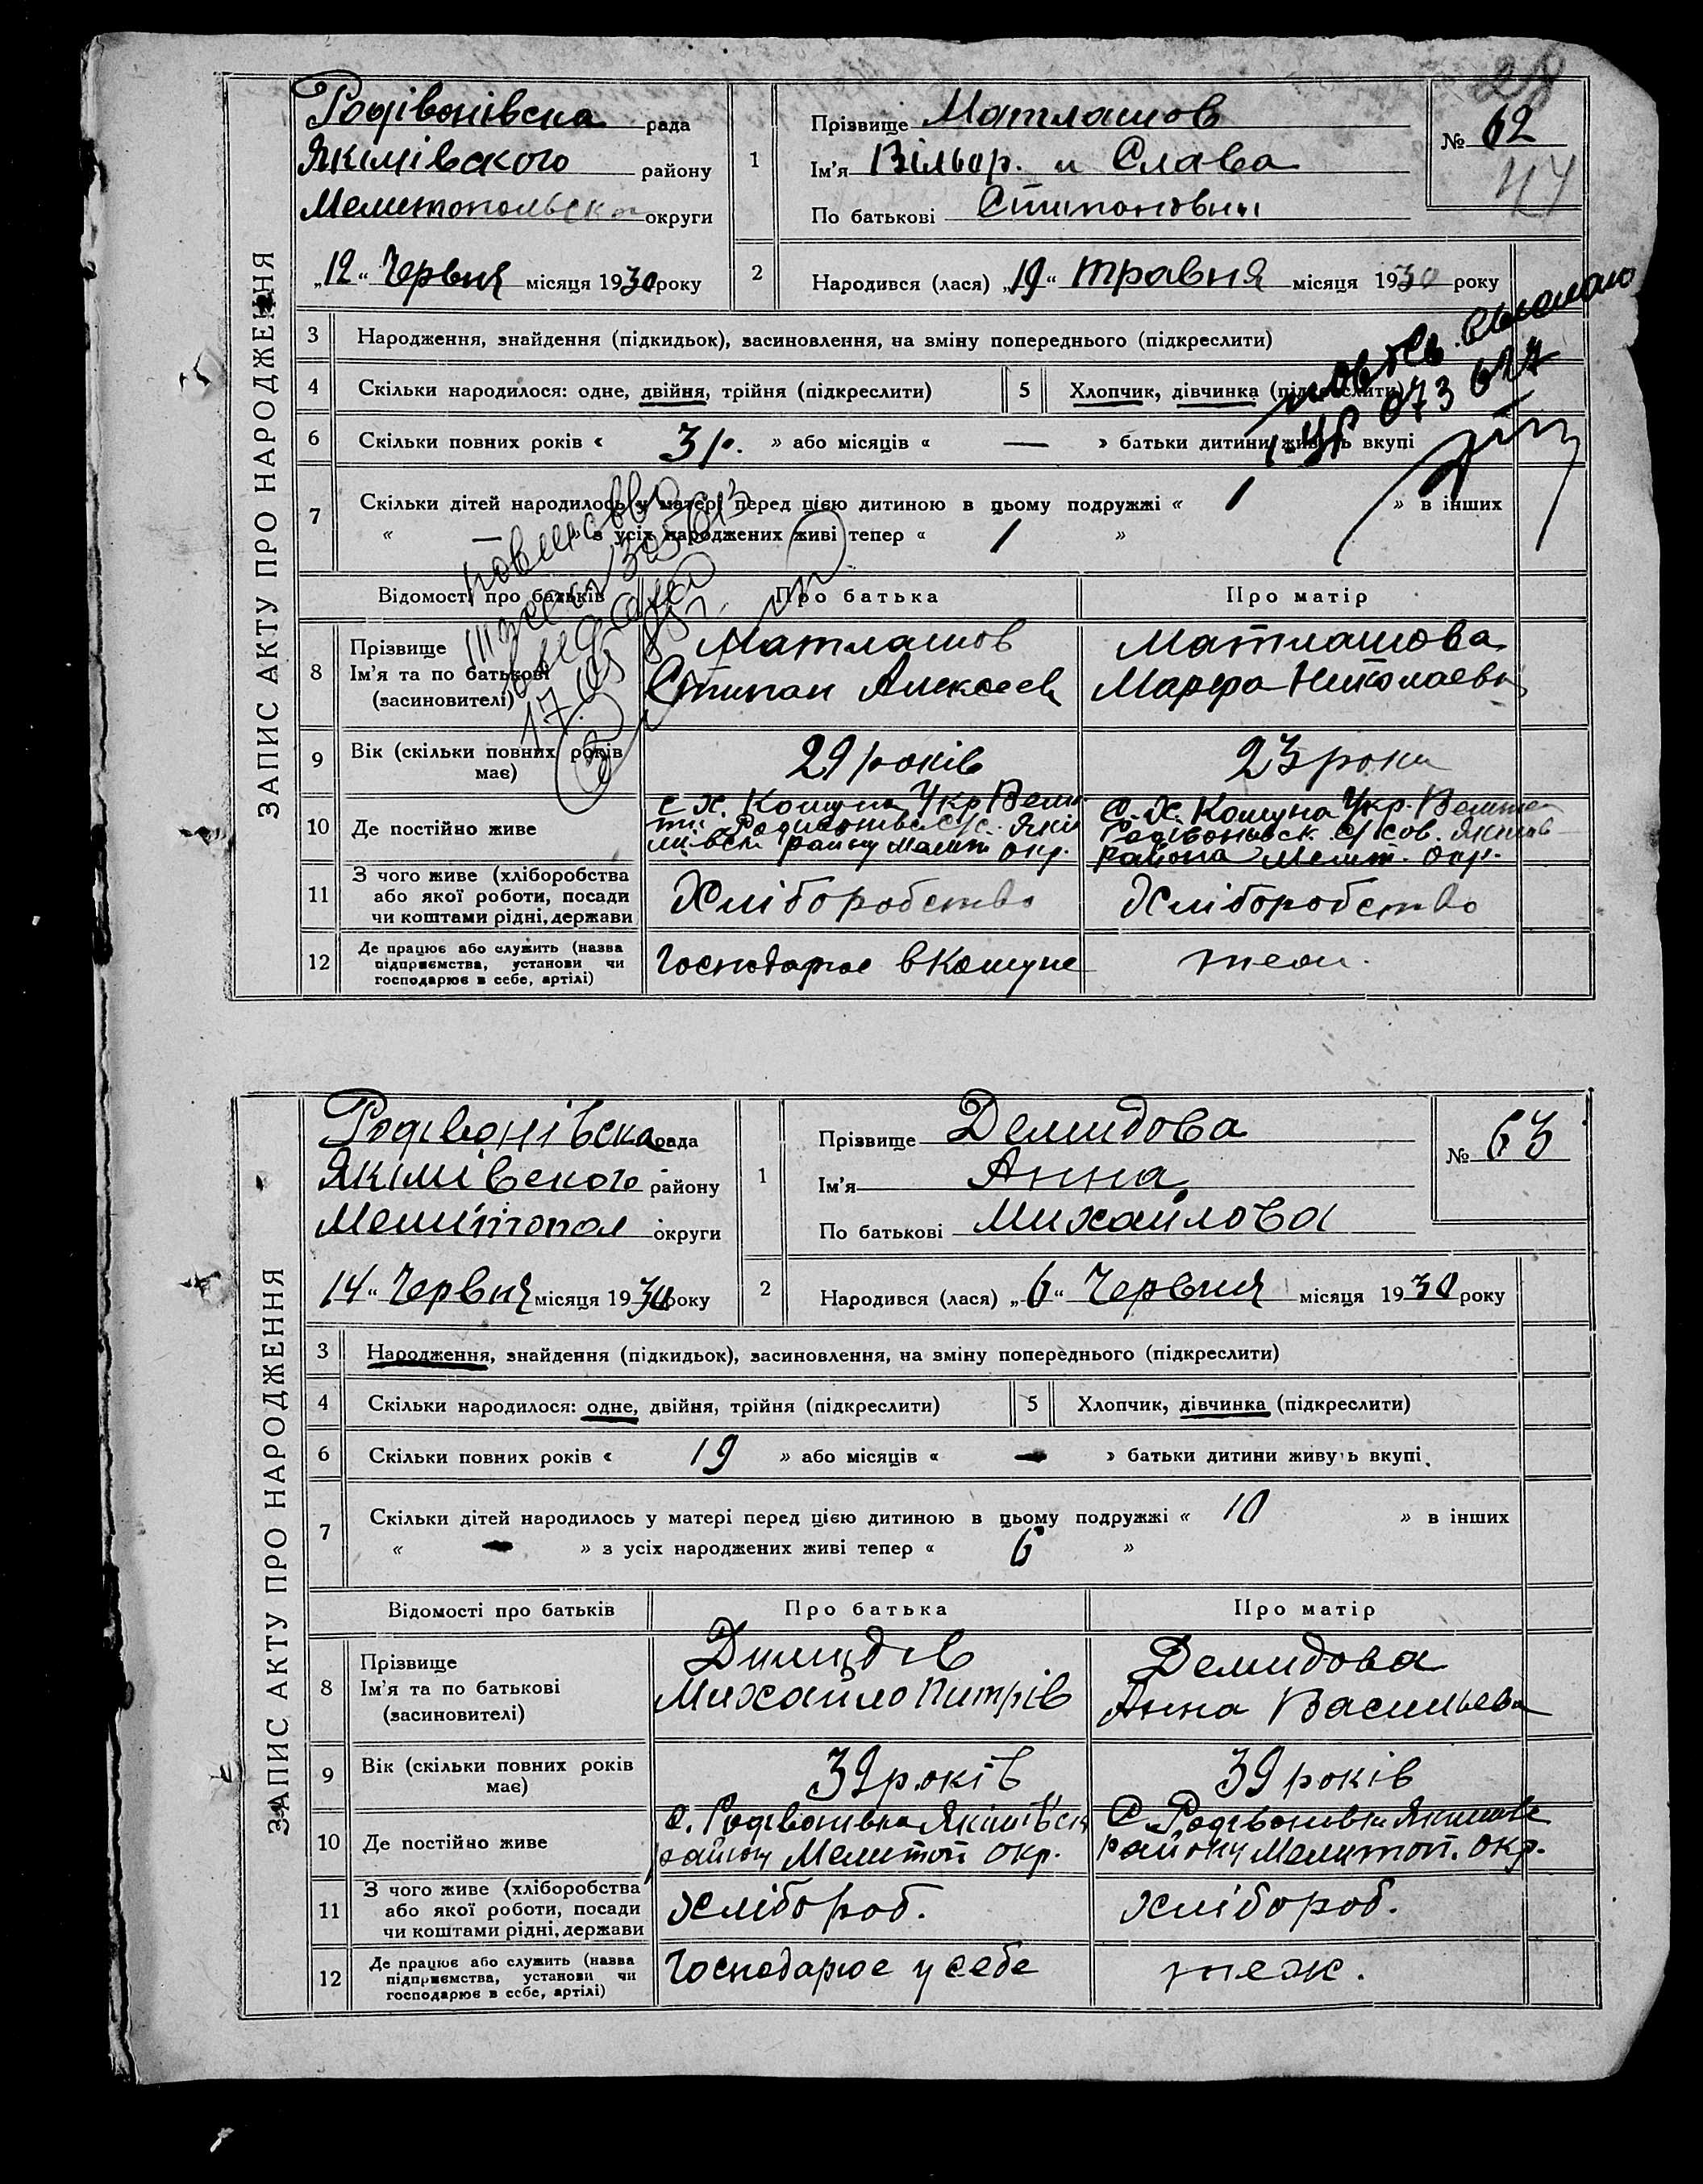 28
ЗАПИС АКТУ ПРО НАРОДЖЕННЯ
Родівонівска рада
Якімівского району
Мелитопольск округи
„12“ Червня місяця 1930 року
1
Прізвище Матлашов
Ім'я Вільор. и Слава
По батькові Стипановын
№ 62
44
2
Народився (лася) „19“ травня місяця 1930 року
3 Народження, знайдення (підкидьок), засиновлення, на зміну попереднього (підкреслити)
4 Скільки народилося: одне, двійня, трійня (підкреслити)
5 Хлопчик, дівчинка (підкреслити)
073 627
6 Скільки повних років « 3 р. » або місяців « — » батьки дитини живуть вкупі
7 Скільки дітей народилось у матері перед цією дитиною в цьому подружжі « 1 » в інших
« » з усіх народжених живі тепер « 1 »
Відомості про батьків
Про батька
Про матір
8 Прізвище
Ім'я та по батькові
(засиновителі)
Матлашов
Стипан Алексеев
Матлашова
Марфа Николаевн
9 Вік (скільки повних років має)
29 років
23 роки
10 Де постійно живе
с. х. Комуна Укр
району Мелит окр.
С. Х. Комуна Укр.
района Мелит. Окр.
11 З чого живе (хліборобства
або якої роботи, посади
чи коштами рідні, держави
Хліборобство
Хліборобство
12 Де працює або служить (назва
підприємства, установи чи
господарює в себе, артілі)
Господарює в Комуне
теж.
ЗАПИС АКТУ ПРО НАРОДЖЕННЯ
Родівонівска рада
Якімівского району
Мелитопол округи
14“ Червня місяця 1930 року
1
Прізвище Демидова
Ім'я Анна
По батькові Михайлова
№ 63
2
Народився (лася) „6“ Червня місяця 1930 року
3 Народження, знайдення (підкидьок), засиновлення, на зміну попереднього (підкреслити)
4 Скільки народилося: одне, двійня, трійня (підкреслити)
5 Хлопчик, дівчинка (підкреслити)
6 Скільки повних років « 19 » або місяців « — » батьки дитини живуть вкупі
7 Скільки дітей народилось у матері перед цією дитиною в цьому подружжі « 10 » в інших
« — » з усіх народжених живі тепер « 6 »
Відомості про батьків
Про батька
Про матір
8 Прізвище
Ім'я та по батькові
(засиновителі)
Димидов
Михайло Питрів
Демидова
Анна Васильева
9 Вік (скільки повних років має)
39 років
39 років
10 Де постійно живе
с. Родівонівка Якімівск
району Мелитоп окр.
С. Родівоновка Якимов
району Мелитоп. Окр.
11 З чого живе (хліборобства
або якої роботи, посади
чи коштами рідні, держави
Хлібороб.
Хлібороб.
12 Де працює або служить (назва
підприємства, установи чи
господарює в себе, артілі)
Господарює у себе
теж.